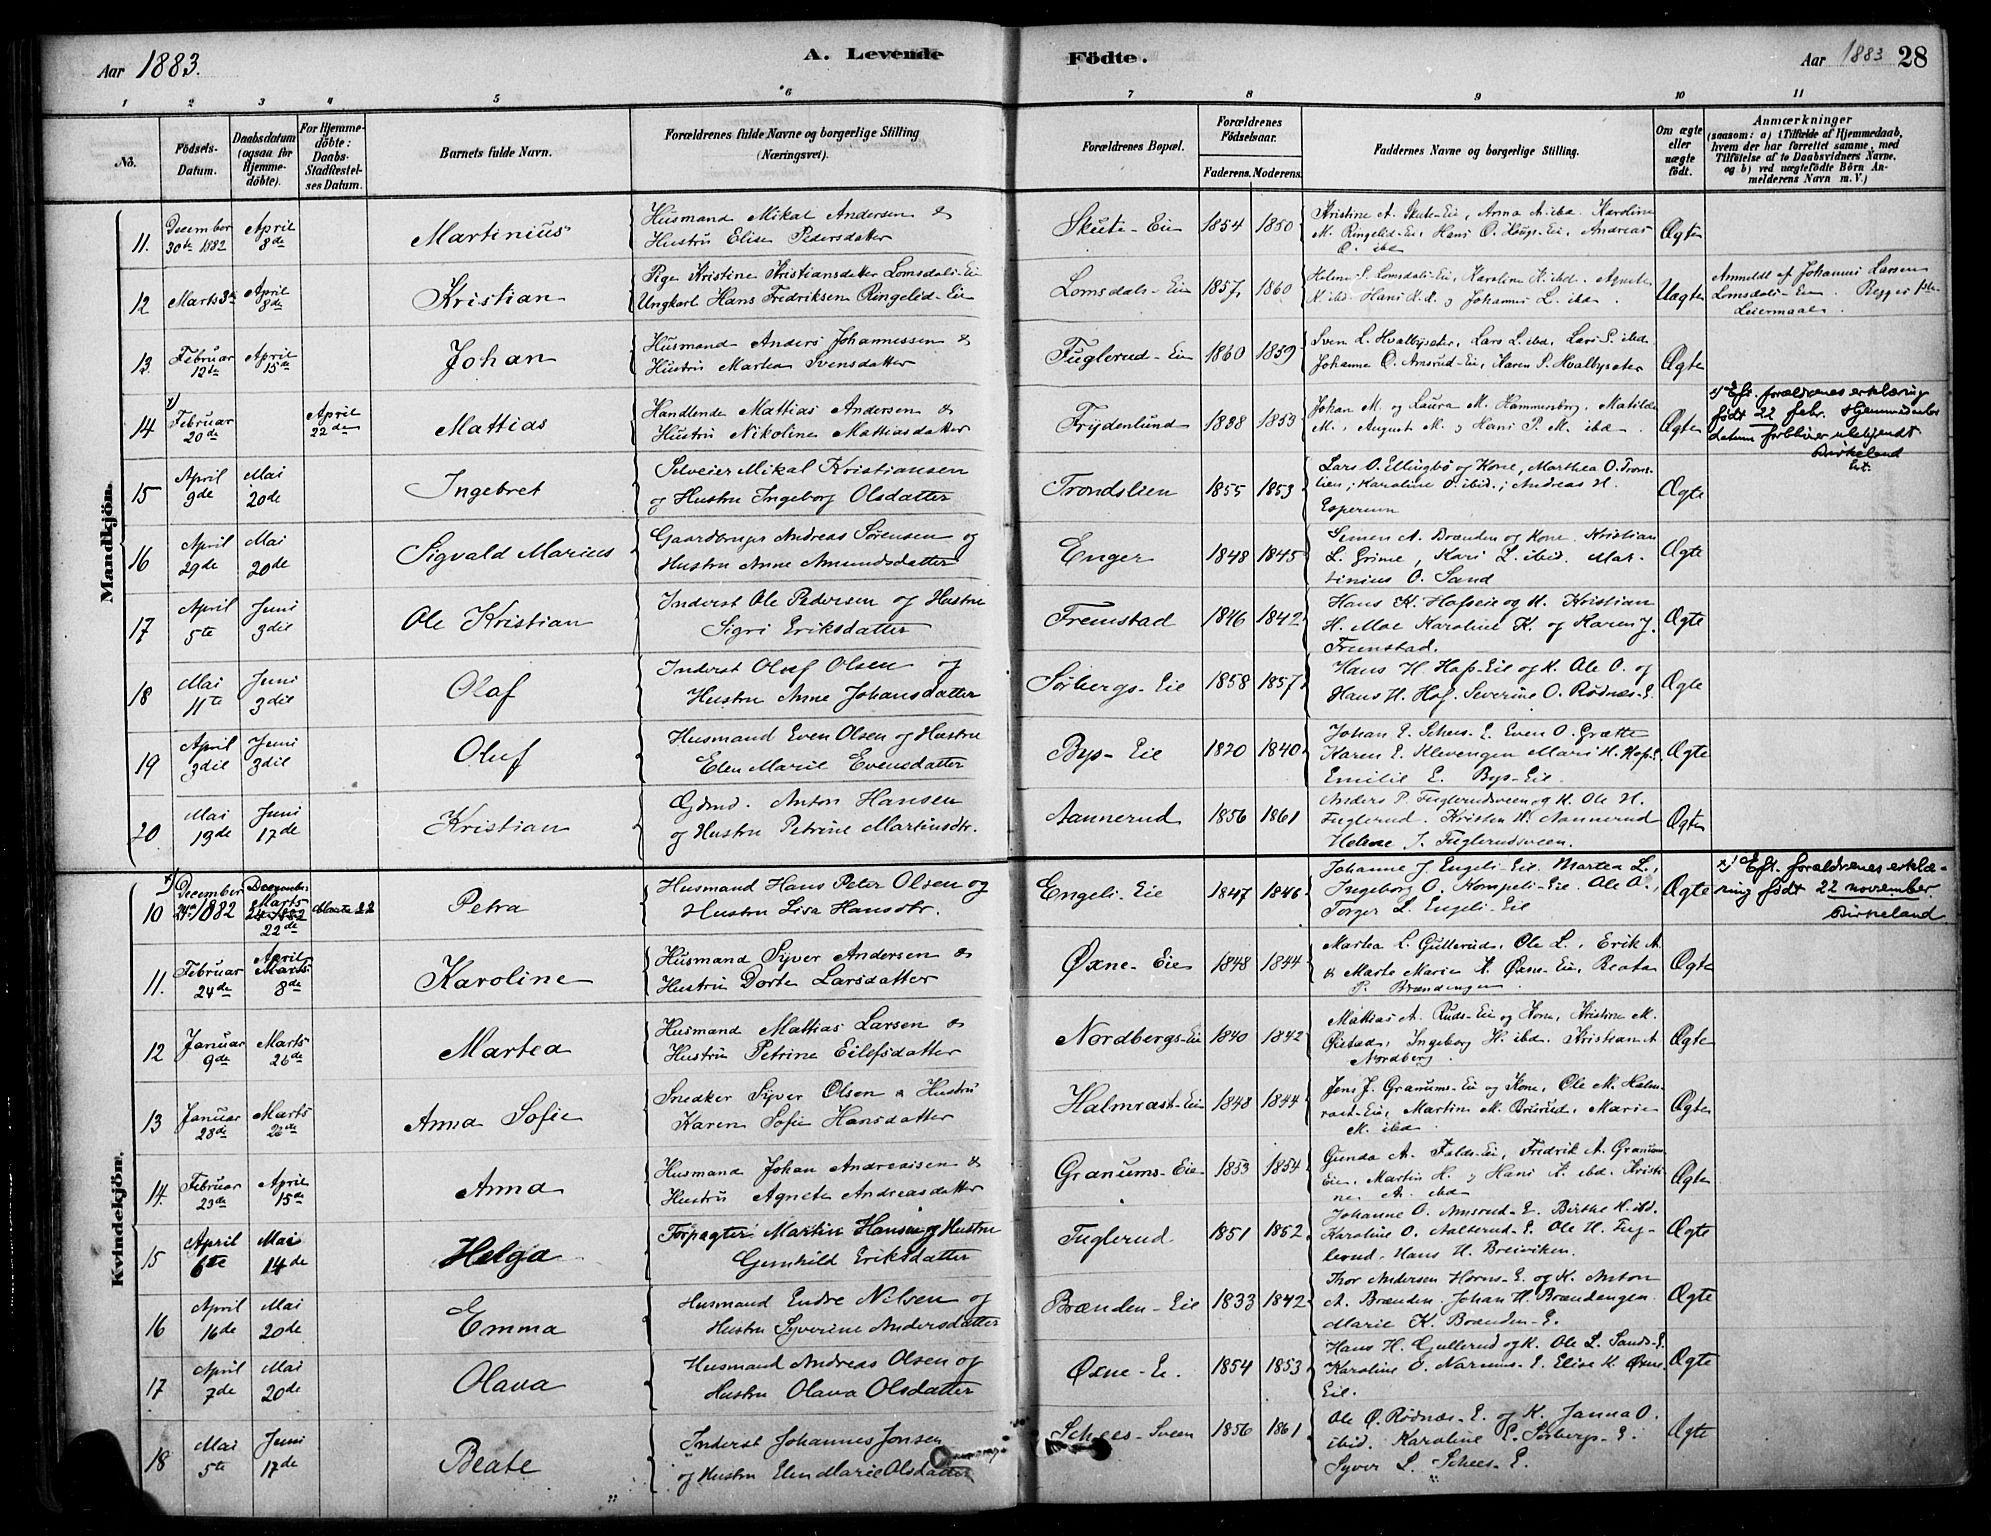 Aar 1883.
A. Levende Födte.
Aar 1883 28
1 2 3 4 5 6 7 8 9 10 11
No.
Födsels-Datum.
Daabsdatum (ogsaa for Hjemme-döbte).
For Hjemme-döbte: Daabs-Stadfæstel-ses Datum.
Barnets fulde Navn.
Forældrenes fulde Navne og borgerlige Stilling (Næringsvei).
Forældrenes Bopæl.
Forældrenes Födselsaar.
Faderens. Moderens.
Faddernes Navne og borgerlige Stilling.
Om ægte eller uægte födt.
Anmærkninger
(saasom: a) i Tilfælde af Hjemmedaab, hvem der har forrettet samme, med Tilföielse af to Daabsvidners Navne, og b) ved uægtefödte Börn An-melderens Navn m. V.)
Mandkjön.
11. December 30te 1882 April 8de Martinius
Husmand Mikal Andersen &
Hustru Elise Pedersdatter
Skute-Eie 1854 1850
Kristine A. Skute-Eie, Anna A. ibd. Karoline
M. Ringelid-Eie, Hans O. Haugs-Eie, Andreas
O. ibd Ægte
12 Marts 3de April 8de Kristian
Pige Kristine Kristiansdatter Lomsdals-Eie
Ungkarl Hans Fredriksen Ringelid-Eie
Lomsdals-Eie 1857 1860
Helene S. Lomsdals-Eie, Karoline K. ibd. Agnete
K. ibd. Hans K. R. og Johannes L. ibd. Uægte
Anmeldt af Johannes Larsen
Lomsdals-Eie. Begges 1ste
Leiermaal.
13. Februar 12te April 15de Johan
Husmand Anders Johannessen &
Hustru Martea Svensdatter
Fuglerud-Eie 1860 1859
Sven L. Hvalbyseter, Lars L. ibd. Lars S. ibd.
Johanne O. Amsrud-Eie, Karen P. Hvalbyseter Ægte
14 x) Februar 20de April 22de Mattias
Handlende Mattias Andersen &
Hustru Nikoline Mattiasdatter
Frydenlund 1838 1853
Johan M. og Laura M. Hammersborg, Matilde
M., August M. og Hans P. M. ibd. Ægte
x) Eft. forældrenes erklæring
født 22 febr. Hjemmedøbt
datum forbliver ubekjendt
Birkeland
15 April 9de Mai 20de Ingebret
Selveier Mikal Kristiansen
og Hustru Ingeborg Olsdatter
Trondslien 1855 1853
Lars O. Ellingbø og Kone, Marthea O. Trons-
lien, Karoline O. ibid., Andreas H.
Espersen Ægte
16 April 29de Mai 20de Sigvald Marius
Gaardbruger Andreas Sørensen og
Hustru Anne Amundsdatter
Enger 1848 1845
Simen A. Brænden og Kone. Kristian
L. Grime, Kari L. ibid. Mar-
tinius O. Sand Ægte
17 April 5te Juni 3die Ole Kristian
Inderst Ole Pedersen og Hustru
Sigri Eriksdatter
Fremstad 1846 1842
Hans K. Hofseie og K. Kristian
H. Moe Karoline K. og Karen J.
Fremstad. Ægte
18 Mai 11te Juni 3die Olaf
Inderst Oluf Olsen og
Hustru Anne Johansdatter
Sørbergs-Eie 1858 1857
Hans H. Hofs-Eie og K. Ole O. og
Hans H. Hof. Severine O. Rødnæs-E. Ægte
19 April 3die Juni 3die Oluf
Husmand Even Olsen og Hustru
Elen Marie Evensdatter
Bys-Eie 1820 1840
Johan E. Schees-E. Even O. Grætte
Karen E. Klevengen Mari H. Hofs-E.
Emilie E. Bys-Eie. Ægte
20 Mai 19de Juni 17de Kristian
Gdmd. Anton Hansen
og Hustru Petrine Martinsdtr.
Aannerud 1856 1861
Anders P. Fuglerudsveen og K. Ole H.
Fuglerud. Kristen H. Aannerud
Helene J. Fuglerudsveen. Ægte
Kvindekjön.
10 x) December 24de 1882 December 24 1882 Marts 22de Marts 22 Petra
Husmand Hans Peter Olsen og
Hustru Lisa Hansdtr.
Engeli-Eie 1847 1846
Johanne J. Engeli-Eie. Martea L.,
Ingeborg O. Kompeli-Eie. Ole O.,
Torger L. Engeli-Eie Ægte
x) Eft. forældrenes erklæ-
ring født 22 november.
Birkeland
11. Februar 24de April Marts 8de Karoline
Husmand Syver Andersen &
Hustru Dorte Larsdatter
Øxne-Eie 1848 1844
Martea L. Gullerud, Ole L., Erik A.
& Marte Marie K. Øxne-Eie, Beata
P. Brændengen. Ægte
12 Januar 9de Marts 26de Martea
Husmand Mattias Larsen &
Hustru Petrine Eilefsdatter
Nordbergs-Eie 1840 1842
Mattias A. Ruds-Eie og Kone, Kristine M.
Øistad, Ingeborg H. ibd. Kristian A
Nordberg. Ægte
13 Januar 28de Marts 26de Anna Sofie
Snedker Syver Olsen & Hustru
Karen Sofie Hansdatter
Halmrast-Eie 1848 1844
Jens J. Granums-Eie og Kone, Ole M. Halm-
rast-Eie, Martin M. Brørud, Marie
M. ibd. Ægte
14. Februar 23de April 15de Anna
Husmand Johan Andreassen &
Hustru Agnete Andreasdatter
Granums-Eie 1853 1854
Gunda A. Falds-Eie, Fredrik A. Granum-
Eie, Martin H. og Hans K. ibd. Kristi-
ne A. ibd Ægte
15 April 6te Mai 14de Helga
Forpagter Martin Hansen og Hustru
Gunhild Eriksdatter
Fuglerud 1851 1852
Johanne O. Amsrud-E. Birthe H. ibd.
Karoline O. Aalterud-E. Ole H. Fug-
lerud. Hans H. Breiviken. Ægte
16 April 16de Mai 20de Emma
Husmand Endre Nilsen og
Hustru Syverine Andersdatter
Brænden-Eie 1833 1842
Thor Andersen Horns-E. og K. Anton
A. Brænden. Johan H. Brændengen.
Marie K. Brænden-E. Ægte
17 April 7de Mai 20de Olava
Husmand Andreas Olsen og
Hustru Olava Olsdatter
Øxne-E. 1854 1853
Hans H. Gullerud og K. Ole L. Sands-E.
Karoline O. Narums-E. Elise K. Øxne
Eie. Ægte
18 Mai 5te Juni 17de Beate
Inderst Johannes Jonsen
og Hustru Elen Marie Olsdatter
Schees-Sveen 1856 1861
Ole Ø. Rødnæs-E. og K. Janna O.
ibid. Karoline E. Sørbergs-E.
Syver L. Schees-E. Ægte